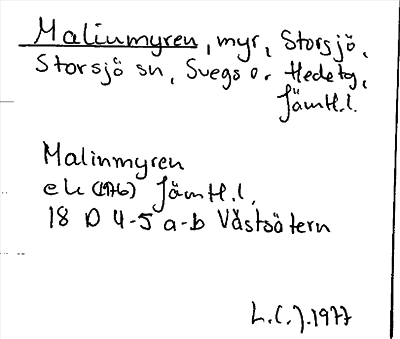 Malinmyren, myr, Storsjö,
Storsjö sn, Svegs o. Hede tg,
Jämtl.l.
Malinmyren
ek (1976) Jämtl.l,
18 D 4-5 a-b Västsätern
L.C.J.1977